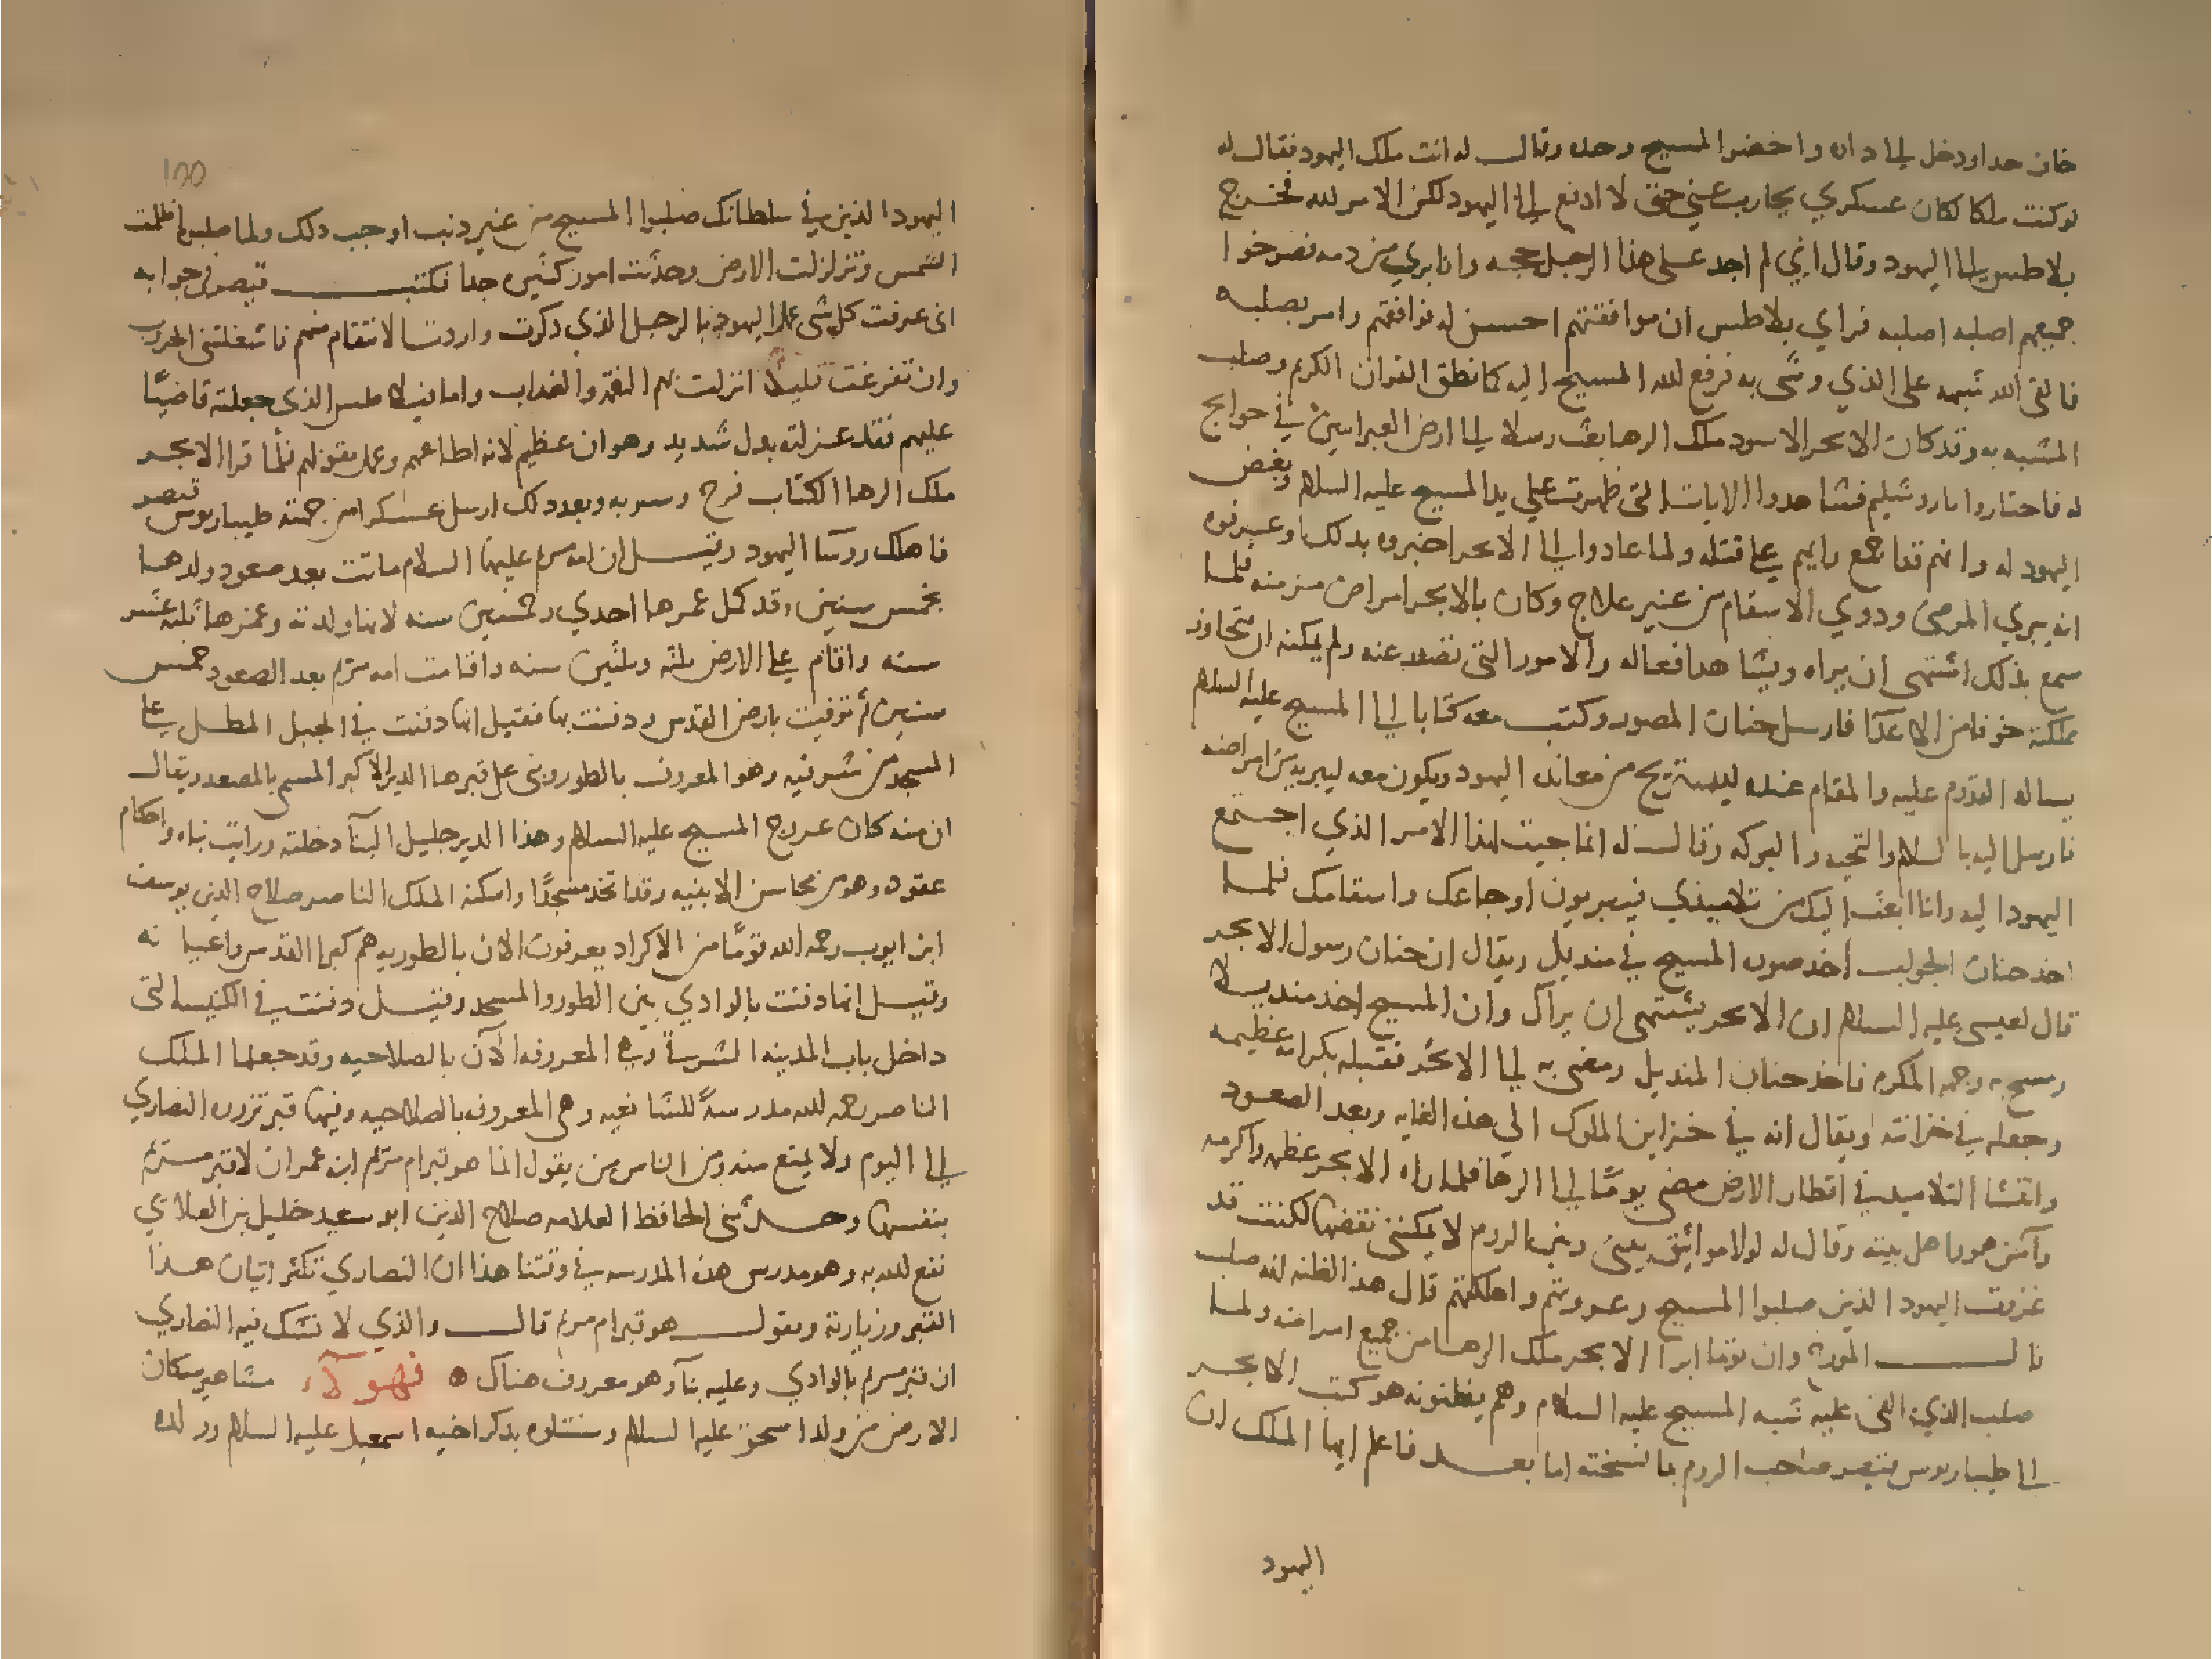 خاف حدا ودخل الى داره واحضر المسيح وحده وقال له انت ملك اليهود فقال له
لو كنت ملكا لكان عسكري يحارب عني حتى لا ادفع الى اليهود لكن الامر لله فخرج
بلاطس الى اليهود وقال اني لم اجد على هذا الرجل حجه وانا بري من دمه فصرخوا
جميعهم اصلبه اصلبه فراي بلاطس ان موافقتهم احسن له فوافقهم وامر بصلبه
فالقى الله شبهه على الذي وشى به فرفع الله المسيح اليه كما نطق القران الكريم وصلب
المشبه به وقد كان الابجر الاسود ملك الرها بعث رسلا الى ارض العبرانيين في حوايج
له فاجتازوا باروشليم فشاهدوا الايات التي ظهرت على يد المسيح عليه السلام وبغض
اليهود له وانهم قد اجمع رايهم على قتله ولما عادوا الى الابجر اخبروه بذلك وعرفوه
انه يبري المرضى وذوي الاسقام من غير علاج وكان بالابجر امراض مزمنه فلما
سمع بذلك اشتهى ان يراه ويشاهد افعاله والامور التي تصدر عنه ولم يمكنه ان يتجاوز
مملكته خوفا من الاعدا فارسل حنان المصور وكتب معه كتابا الى المسيح عليه السلام
يساله القدوم عليه والمقام عنده ليستريح من معانده اليهود ويكون معه ليبريه من امراضه
فارسل اليه بالسلام والتحيه والبركه وقال له انما جيت لهذا الامر الذي اجتمع
اليهود اليه وانا ابعث اليك من تلاميذي فيبريون اوجاعك واسقامك فلما
اخذ حنان الجواب اخذ صوره المسيح في منديل ويقال ان حنان رسول الابجر
قال لعيسى عليه السلام ان الابجر يشتهي ان يراك وان المسيح اخذ منديلا
ومسح به وجهه المكرم فاخذ حنان المنديل ومضى به الى الابجر فقبله بكرامه عظيمه
وجعله في خزانته ويقال انه في خزاين الملوك الى هذه الغايه وبعد الصعود
وانتشا التلاميذ في اقطار الارض مضى توما الى الرها فلما راه الابجر عظمه واكرمه
وآمن هو واهل بيته وقال له لولا مواثيق بيني وبين الروم لا يمكنني نقضها لكنت قد
غزوت اليهود الذين صلبوا المسيح واهلكتهم قال هذا لظنه انه صلب
قال المورخ وان توما ابرا الابجر ملك الرها من جميع امراضه ولما
صلب الذي القى عليه شبه المسيح عليه السلام وهم يظنونه هو كتب الابجر
الى طيباريوس قيصر صاحب الروم بما نسخته اما بعد فاعلم ايها الملك ان
اليهود
100
اليهود الذين في سلطانك صلبوا المسيح من غير ذنب اوجب ذلك ولما صلبوه اظلمت
الشمس وتزلزلت الارض وحدثت امور كثيره جدا فكتب قيصر في جوابه
اني عرفت كل شي عمله اليهود بالرجل الذي ذكرت واردت الانتقام منهم فاشغلتني الحروب
وان تفرغت قليلا انزلت بهم النقمه والعذاب واما فيلاطس الذي جعلته قاضيًا
عليهم فقد عزلته بذل شديد وهوان عظيم لانه اطاعهم وعمل بقولهم فلما قرا الابجر
ملك الرها الكتاب فرح وسر به وبعد ذلك ارسل عسكرا من جهته طيباريوس قيصر
فاهلك روسآ اليهود وقيل ان امه مريم عليها السلام ماتت بعد صعود ولدها
بخمس سنين وقد كمل عمرها احدي وخمسين سنه لانها ولدته وعمرها ثلثه عشر
سنه واقام على الارض ثلثه وثلثين سنه واقامت امه مريم بعد الصعود خمس
سنين ثم توفيت بارض القدس ودفنت بها فقيل انها دفنت في الجبل المطل على
المسجد من شرقيه وهو المعروف بالطور وبنى على قبرها الدير الاكبر المسمى بالمصعد ويقال
ان منه كان عروج المسيح عليه السلام وهذا الدير جليل البنآ دخلته ورايت بناه واحكام
عقوده وهو من محاسن الابنيه وقد اتخذ مسجدًا واسكنه الملك الناصر صلاح الدين يوسف
ابن ايوب رحمه الله قومًا من الاكراد يعرفون الان بالطوريه هم كبرا القدس واعيانه
وقيل انها دفنت بالوادي بين الطور والمسجد وقيل دفنت في الكنيسه التي
داخل باب المدينه الشرسا وهي المعروفه الآن بالصلاحيه وقد جعلها الملك
الناصر رحمه الله مدرسةً للشافعيه وهي المعروف بالصلاحيه وفيها قبر تزوره النصاري
الى اليوم ولا يمنع منه ومن الناس من يقول انما هو قبر ام مريم ابنه عمران لا قبر مريم
بنفسها وحدثني الحافظ العلامه صلاح الدين ابو سعيد خليل بن العلاي
نفع الله به وهو مدرس هذه المدرسه في وقتنا هذا ان النصاري تكثر اتيان هذا
القبر وزيارته ويقول هو قبر ام مريم قال والذي لا تشك فيه النصاري
ان قبر مريم بالوادي وعليه بنآ وهو معروف هناك ه فهولآء مشاهير سكان
الارض من ولد اسحق عليه السلام وسنتلوه بذكر اخيه اسمعيل عليه السلام وولده